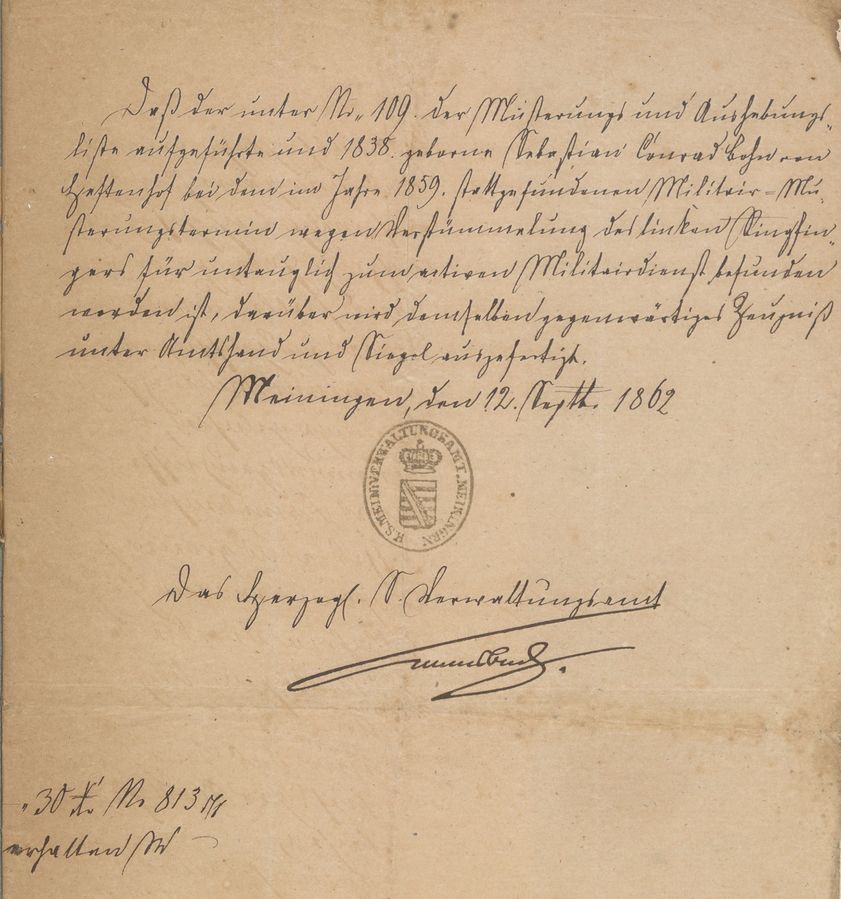 Daß der unter No. 109. der Musterungs und Aushebungs-
liste aufgeführte und 1838. geborne Sebastian Conrad Bohn von
bei dem im Jahre 1859. stattgefundenen Militair-Mu-
sterungstermin wegen Verstümmelung des linken Ringfin-
gers für untauglich zum activen Militairdienst befunden
worden ist, darüber wird demselben gegenwärtiges Zeugniß
unter Amtshand und Siegel ausgefertigt.
Meiningen, den 12. Septb. 1862
H.S. MEIN. VERWALTUNGSAMT. MEININGEN
Das Herzogl. S. Verwaltungsamt
30 No 813
erhalten